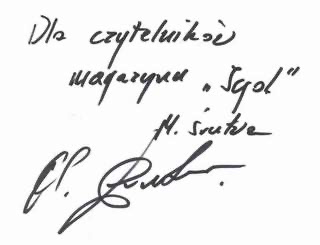 Dla czytelników
magazynu „Sgol”
M. Śrutwa